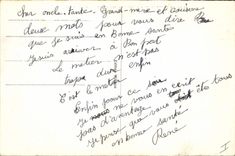 Cher oncle. Tante. Grand-mère et Cousine
deux mots pour vous dire
que je suis en Bonne santé
je suis arriver à Bon port
Le métier n'est pas
trop dur enfin
C'est le métier
Enfin pour ce soir
je ne vous en écrit
pas d'avantage
je pense que vous êtes tous
en bonne santé
René
I